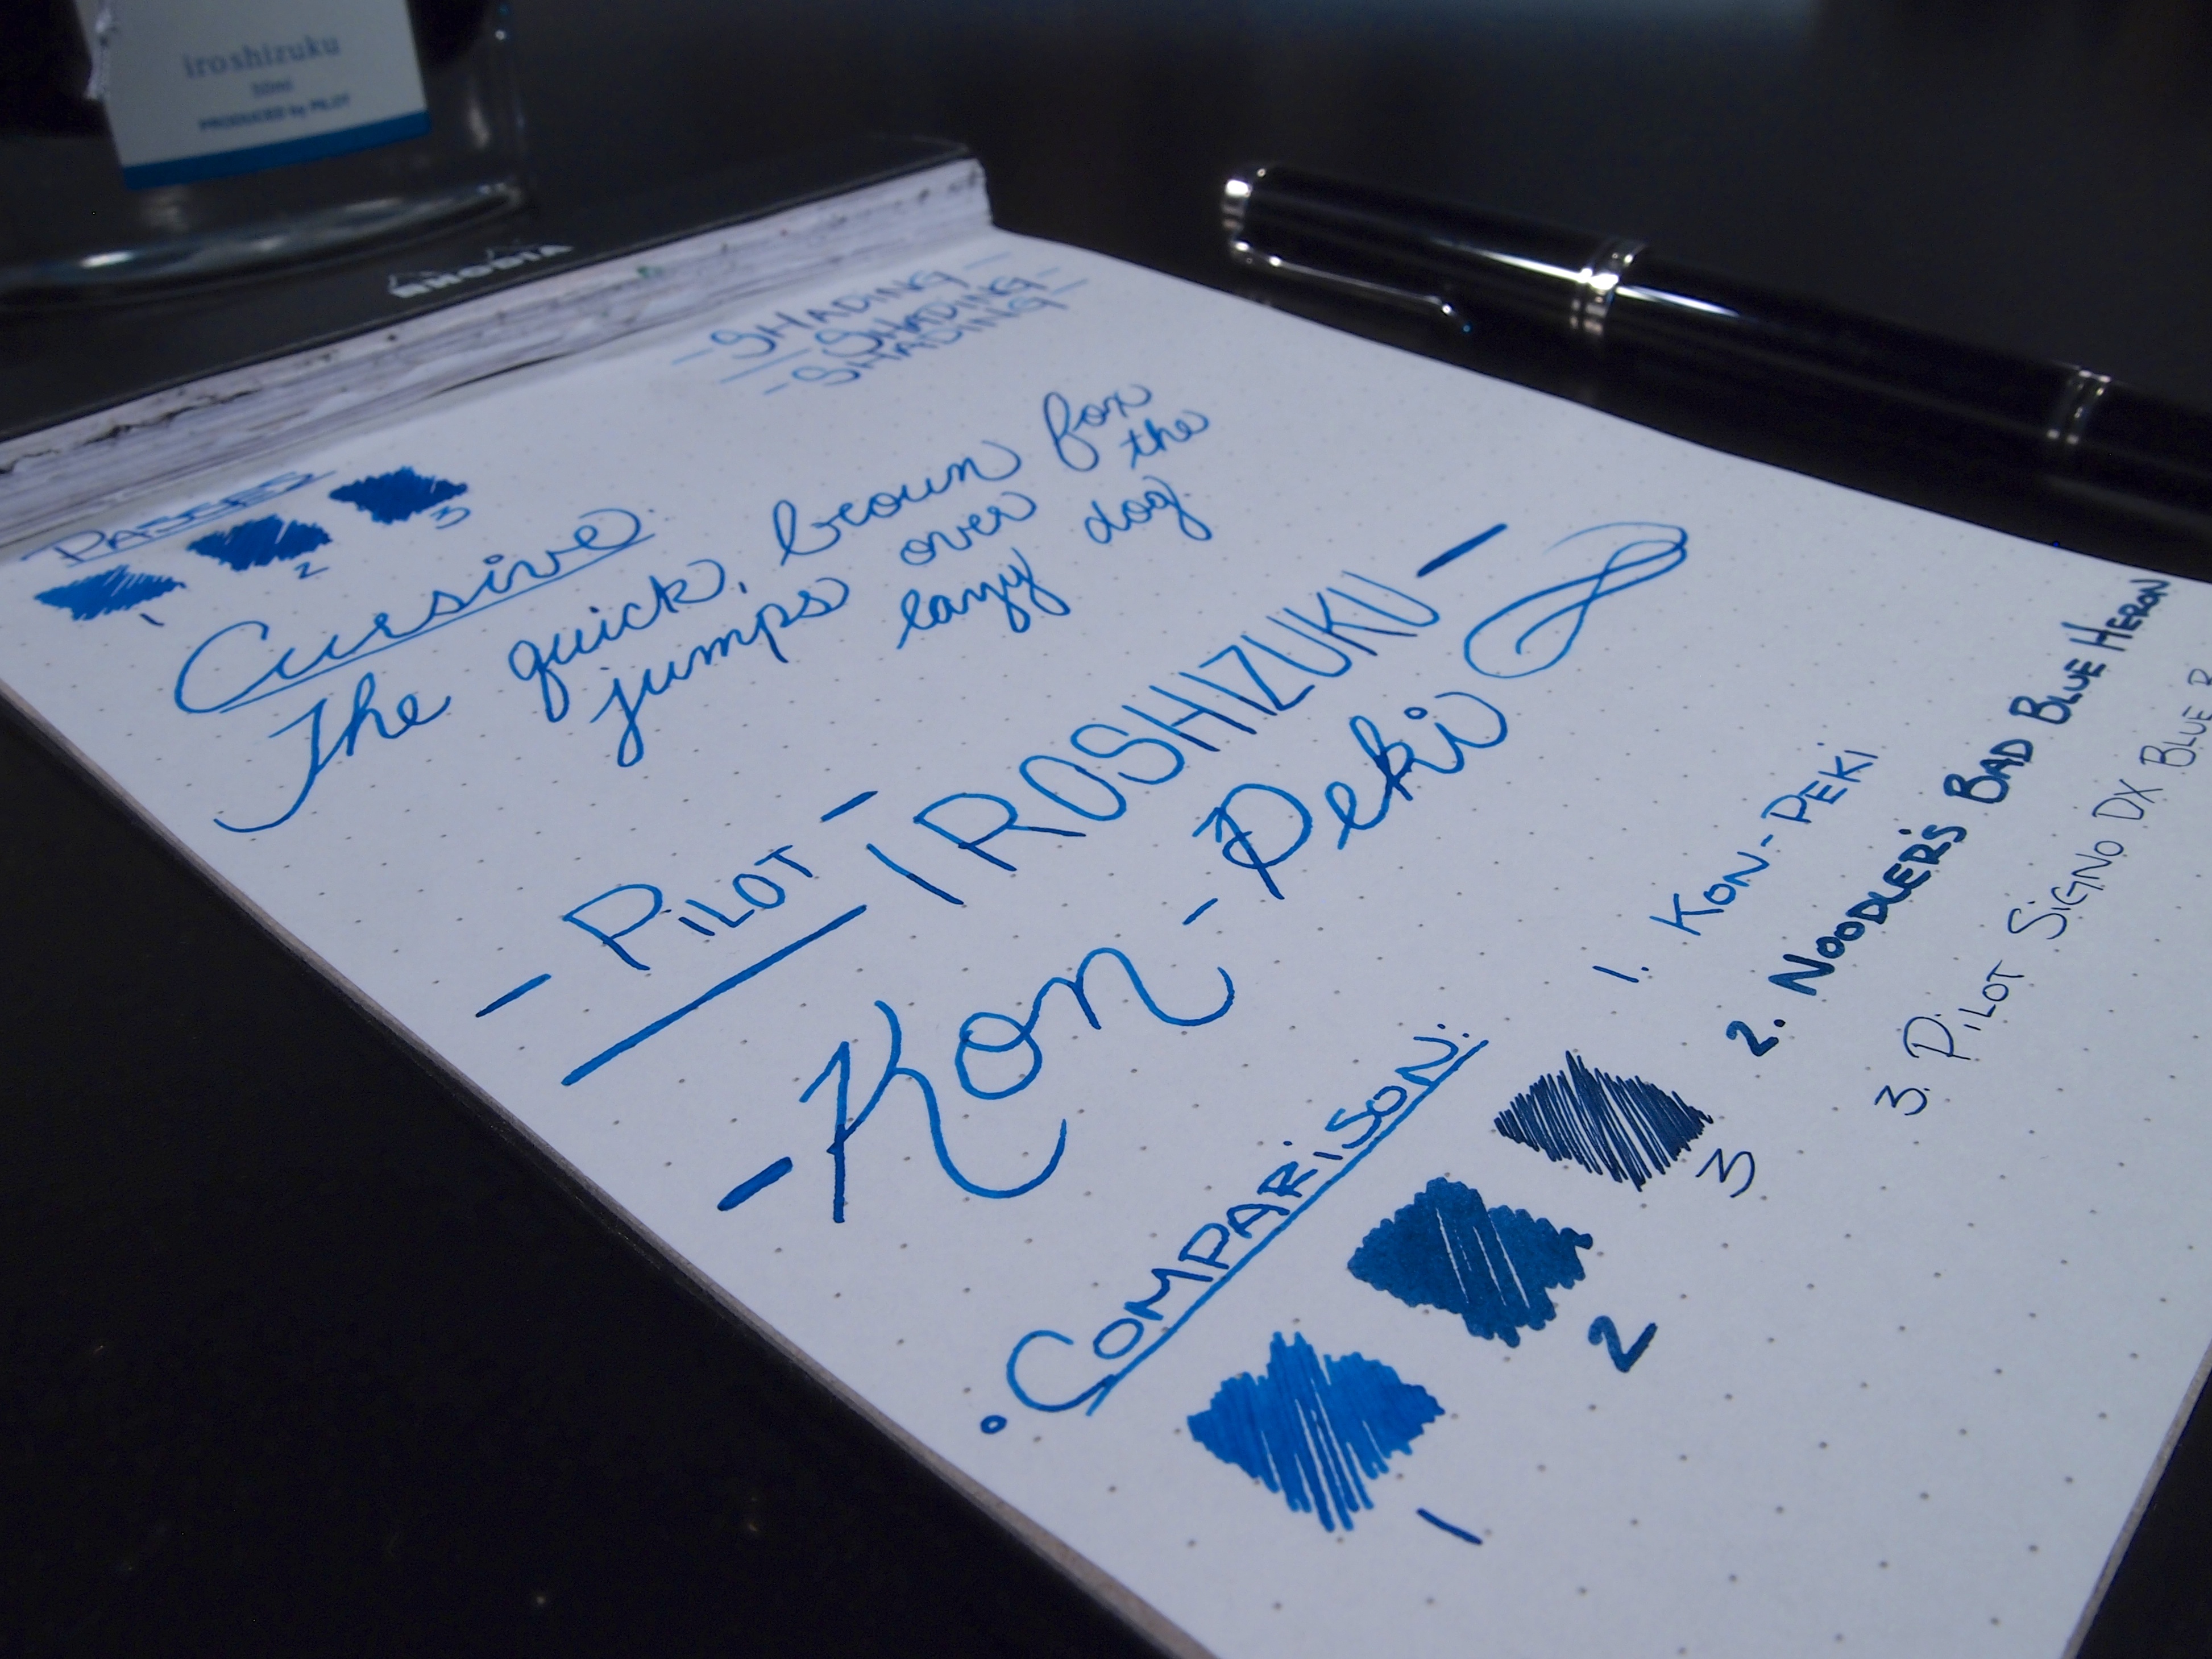 iroshizuku
50ml
PRODUCED by PILOT
RHODIA
- SHADING -
- SHADING -
- SHADING -
PASSES
1
2
3
Cursive.
The quick, brown fox
jumps over the
lazy dog
- PILOT -
- IROSHIZUKU -
- Kon - Peki
• COMPARISON:
1
2
3
1. KON-PEKI
2. NOODLER'S BAD BLUE HERON
3. PILOT SIGNO DX BLUE